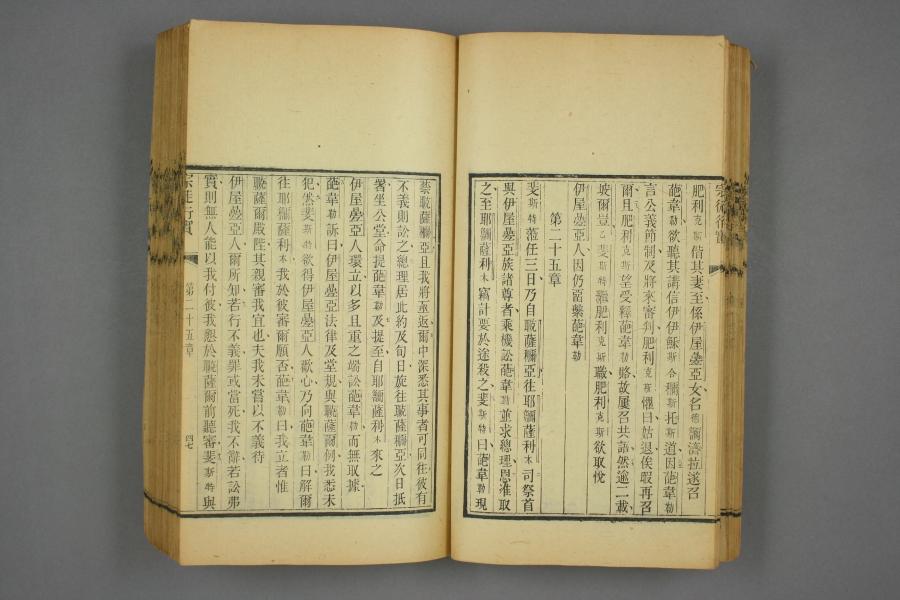 肥利克斯偕其妻至係伊屋叠亞女名德嚕濟拉遂召
葩韋勒欲聽其講信伊伊穌斯合禰斯托斯道因葩韋勒
言公義節制及將來審判肥利克斯懼曰姑退俟暇再召
爾且肥利克斯望受釋葩韋勒賂故屢召共語然逾二載
坡爾豈乙斐斯特繼肥利克斯職肥利克斯欲取悅
伊屋叠亞人因仍留繫葩韋勒
第二十五章
斐斯特蒞任三日乃自職薩爾亞往耶嚕薩利木司祭首
與伊屋叠亞族諸尊者乘機訟葩韋勒並求總理恩准取
之至耶嚕薩利木竊計要於途殺之斐斯特曰葩韋勒現
禁職薩爾亞且我將亟返爾中深悉其事者可同往彼有
不義則訟之總理居此約及旬日旋往職薩爾亞次日抵
署坐公堂命提葩韋勒及提至自耶嚕薩利木來之
伊屋叠亞人環立以多且重之端訟葩韋勒而無取據
葩韋勒訴曰伊屋叠亞法律及堂規與職薩爾例我悉未
犯然斐斯特欲得伊屋叠亞人歡心乃向葩韋勒曰解爾
往耶嚕薩利木我於彼審爾願否葩韋勒曰我立者惟
職薩爾殿陛其親審我宜也夫我未嘗以不義待
伊屋叠亞人爾所知若行不義罪或當死我不辭若訟弗
實則無人能以我付彼我懇於職薩爾前聽審斐斯特與
宗徒行實
第二十五章
四七